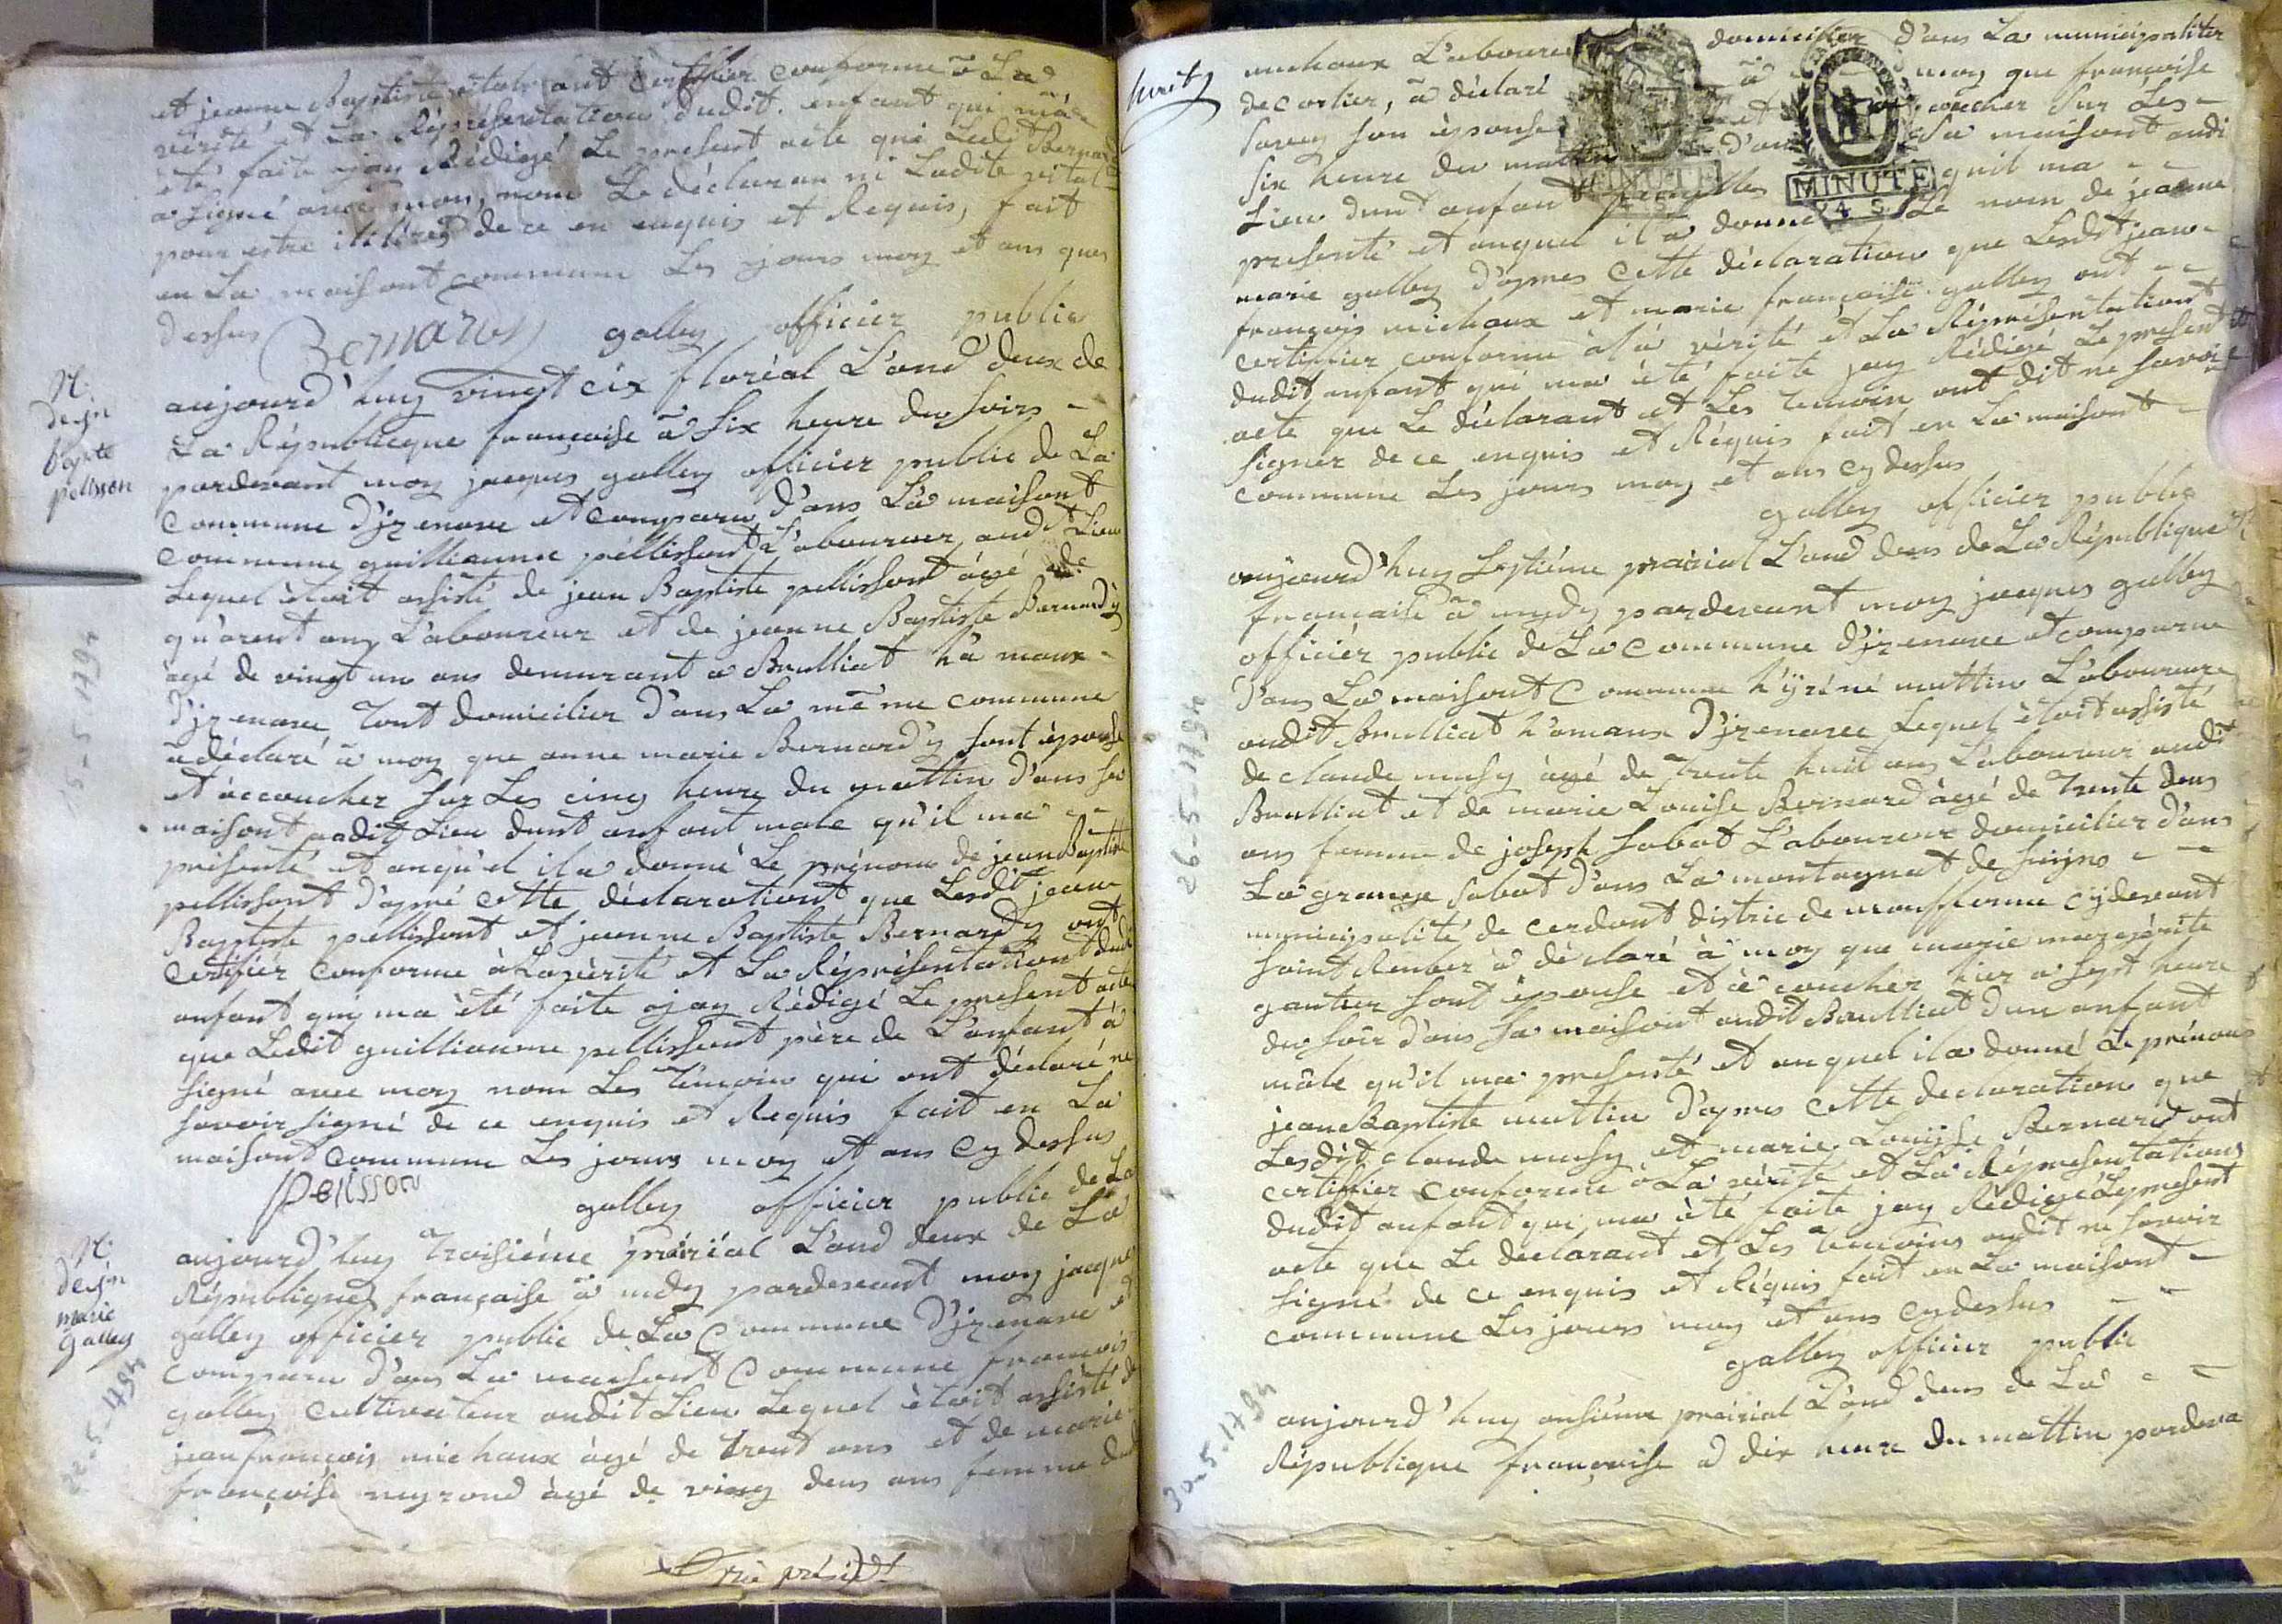 et jeanne Baptiste vital ont certifier conforme à La
vérité et La Répresentation dudit enfant qui m'a
été faite jay Rédigé Le present acte que Ledt Bernard
a signé avec moy, nom Le déclaran ni Ladite vital
pour estre illiteres de ce en enquis et Requis, fait
en La maisont commune Les jours moy et ans que
dessus Bernard galley officier public
N.
de jn
bapte
pellisson
aujourd'huy vingt cix floréal L'and deux de
La Républicque française à six heure du soirs
pardevant moy jacques galley officier public de La
Commune d'izenave et comparu d'ans La maisont
commune guillieaume pellissont L'aboureur audt Lieu
Lequel étoit assisté de jean Baptiste pellissont àgé de
qu'arent ans L'aboureur et de jeanne Baptiste Bernard'y
agé de vingt un ans demurant a Brulliat h'a maux
d'izenave tout domicilier d'ans La méme commune
a déclaré à moy que anne marie Bernard'y sont épouse
et àccoucher sur Les cinq heure du mattin d'ans sa
maisont audit Lieu dunt anfant male qu'il ma
présenté et auqu'el il a donné Le prénom de jean Baptiste
pellissont d'apré cette déclarationt que Lesdt jean
Baptiste pellissont et jeanne Baptiste Bernardy ont
Certifiér Conforme à La vérité et La Répresentationt dudt
anfant qui ma été faite ojay Rédigé Le present acte
que Ledit guillieaume pellissont père de L'anfant à
signé avec moy nom Les témoin qui ont déclaré ne
savoir signé de ce enquis et Requis fait en La
maisont commune Les jours moy et ans cy dessus
Pelisson
galley officier public de La
N.
de jn
marie
galley
22-5-1794
aujourd'huy troisiéme prairial L'and deux de La
République française à midy pardevant moy jacque
galley officier public de La Commune d'izenave et
comparu d'ans La maisont Commune francois
galley cultivateur audit Lieu Lequel étoit assisté de
jean francois michaux àgé de trent ans et de marie
françoise neyroud àgé de ving deux ans femme dudt
michaux L'aboureur domicilier d'ans La municipaliter
de corlier, à déclaré à moy que francoise
savey son épouse et coucher sur Les
six heure du mattin d'ans sa maisont audi
Lieu dunt anfant femelles quil ma
presenté et auquel il a donné Le nom de jeanne
marie galley d'apres cette déclaration que Lesdt jean
françois michaux et marie francoise galley ont
certiffier conforme à la vérité et La Répresentationt
dudit anfant qui ma été faite jay Rédigé Le present
acte que Le déclarant et Les temoin ont dit ne savoir
signer de ce enquis et Réquis fait en La maisont
commune Les jours moy et ans cy dessus
galley officier public
26-5-1794
aujourd'huy septiéme prairial L'and deus de La République
francaise à mydy pardevant moy jacques galley
officiér public de La Commune d'izenave et comparu
d'ans La maisont Commune h'yréné mattin L'aboureure
audit Brulliat h'amaux d'izenave Lequel étoit assisté
de claude musy àgé de trente huit ans L'aboureur audt
Brulliat et de marie Louise Bernard àgé de trente deus
ans femme de joseph sabot L'aboureur domicilier d'ans
La grange sabot d'ans La montagnat de
municipalité de cerdont distric de montferme cydevant
saint Rember à déclaré à moy que marie margérite
gautier sont épouse et à coucher hier a sept heure
du soir d'ans sa maisont audit Brulliat dun anfant
mâle qu'il ma presenté et auquel il a donné Le prénom
jean Baptiste mattin d'apres cette declaration que
Lesdit claude musy et marie Louijse Bernard ont
certiffier conforme à La vérité et La Répresentations
dudit anfant qui ma été faite jay Rédigé Le present
acte que Le declarant et Les temoins ondit ne savoir
signé de ce enquis et Réquis fait en La maisont
commune Les jours moy et ans cy dessus
galley officier public
30-5-1794
aujourd'huy onsiéme prairial L'and deus de La
République françoise a dix heure du mattin pardeva
MINUTE
MINUTE
4 S.